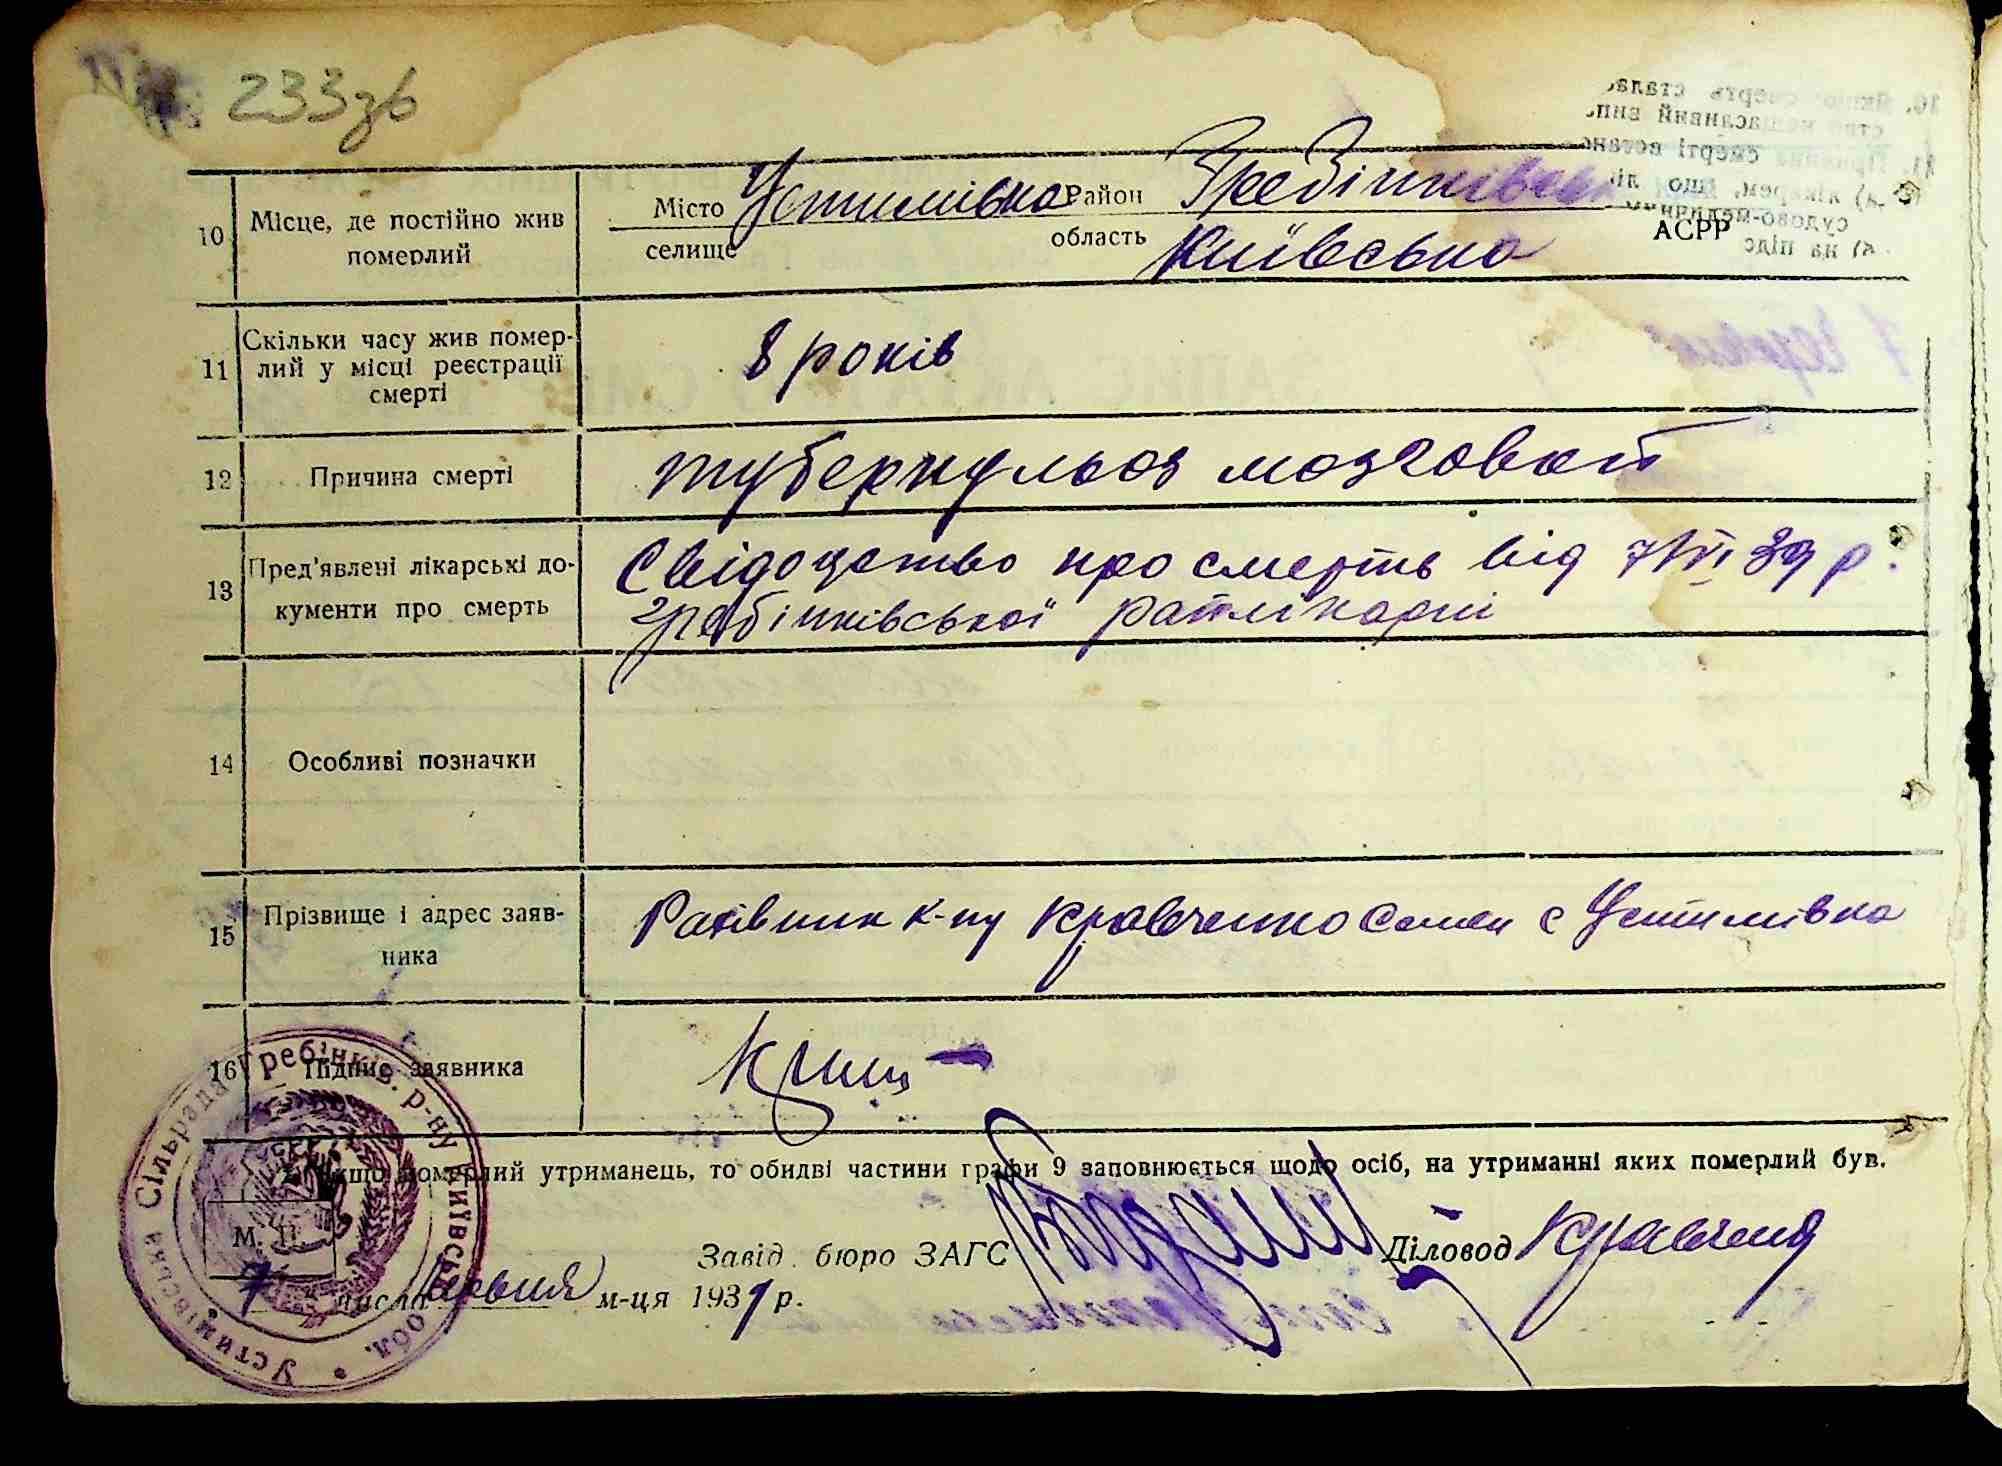 233зв
10 Місце, де постійно жив померлий
Місто Устимівка Район Гребінківськ
селище область Київська АСРР
11 Скільки часу жив помер-
лий у місці реєстрації
смерті
8 років
12 Причина смерті
туберкульоз мозговой
13 Пред'явлені лікарські до-
кументи про смерть
Свідоцтво про смерть від 7/VI 39 р.
гребінківської райлікарні
14 Особливі позначки
15 Прізвище і адрес заяв-
ника
Рахівник к-пу Кравченко Семен с Устимівка
16 Підпис заявника
Якщо померлий утриманець, то обидві частини графи 9 заповнюється щодо осіб, на утриманні яких померлий був.
М. П.
Завід. бюро ЗАГС
Діловод
7 " числа червня м-ця 1939 р.
Устимівська Сільрада Гребінків. р-ну Київська обл.